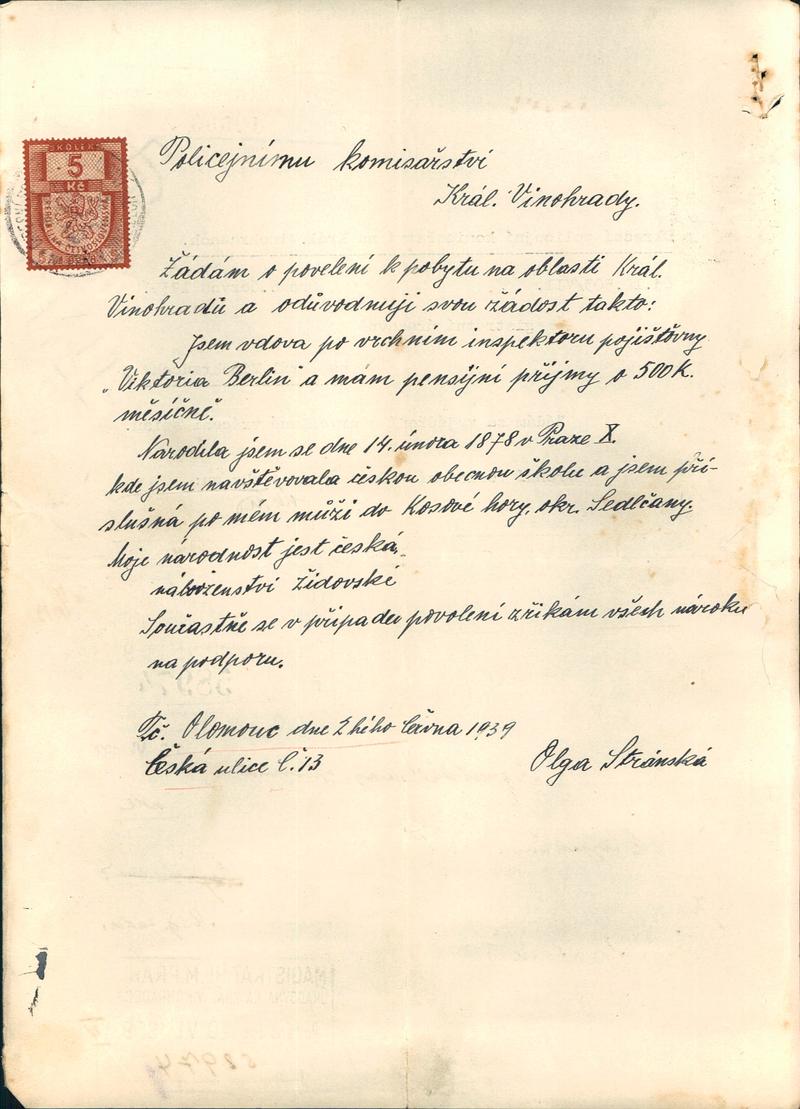 KOLEK
5
Kč
Policejnímu komisařství
Král. Vinohrady.
Žádám o povelení k pobytu na oblasti Král.
Vinohradů a odůvodnuji svou žádost takto:
Jsem vdova po vrchním inspektoru pojištěvny
„Viktoria Berlin" a mám pensijní příjmy o 500K.
měsíčně.
Narodila jsem se dne 14. února 1878 v Praze X.
kde jsem navštěvovala českou obecnou školu a jsem pří-
slušná po mém muži do Kosové hory, okr. Sedlčany.
Moje národnost jest česká,
náboženství židovské
Součastně se v případu povolení zřikám všech nároku
na podporu.
Tč. Olomouc dne 2hého června 1939
Česká ulice č. 13
Olga Stránská
52974